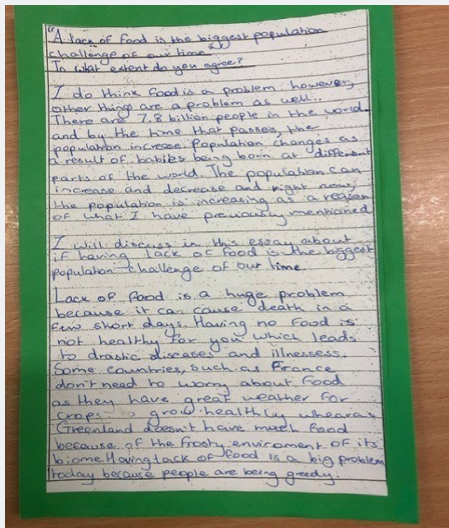 "A lack of food is the biggest population
challenge of our time."
To what extent do you agree?
I do think food is a problem however,
other things are a problem as well..
There are 7.8 billion people in the world
and by the time that passes, the
population increase. Population changes as
a result of babies being born at different
parts of the world. The population can
increase and decrease and right now,
the population is increasing as a reason
of what I have previously mentioned
I will discuss in this essay about
if having lack of food is the biggest
population challenge of our time.
Lack of food is a huge problem
because it can cause death in a
few short days. Having no food is
not healthy for you which leads
to drastic diseases and illnessess.
Some countries, such as France
don't need to worry about food
as they have great weather for
crops to grow healthly wheareas
Greenland doesn't have much food
because of the frosty enviroment of its
biome. Having lack of food is a big problem
today because people are being greedy.